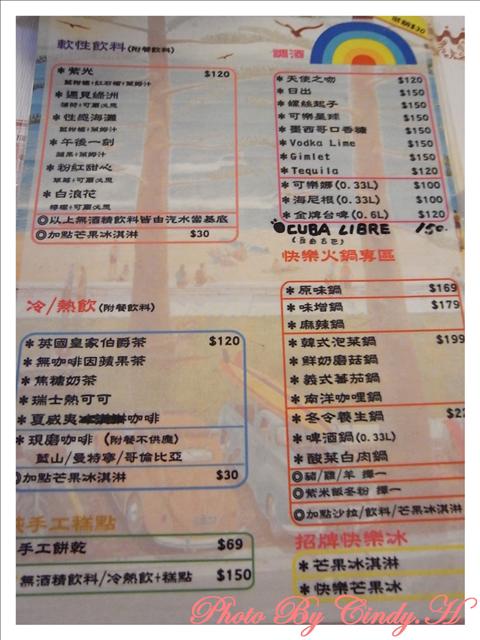 軟性飲料(附餐飲料)
*紫光 $120
藍柑橘+紅石榴+萊姆汁
*遇見綠洲
薄荷+可爾必思
*性感海灘
藍柑橘+萊姆汁
*午後一刻
蘋果+萊姆汁
*粉紅甜心
草莓+可爾必思
*白浪花
檸檬+可爾必思
◎以上無酒精飲料皆由汽水當基底
◎加點芒果冰淇淋 $30
冷/熱飲(附餐飲料)
*英國皇家伯爵茶 $120
*無咖啡因蘋果茶
*焦糖奶茶
*瑞士熱可可
*夏威夷咖啡
*現磨咖啡 (附餐不供應)
藍山/曼特寧/哥倫比亞
◎加點芒果冰淇淋 $30
手工糕點
手工餅乾 $69
無酒精飲料/冷熱飲+糕點 $150
調酒
*天使之吻 $120
*日出 $150
*螺絲起子 $150
*可樂星球 $150
*墨西哥口香糖 $150
*Vodka Lime $150
*Gimlet $150
*Tequila $120
*可樂娜(0.33L) $100
*海尼根(0.33L) $100
*金牌台啤(0.6L) $120
CUBA LIBRE 150.
(自由古巴)
快樂火鍋專區
*原味鍋 $169
*味增鍋 $179
*麻辣鍋
*韓式泡菜鍋 $199
*鮮奶磨菇鍋
*義式蕃茄鍋
*南洋咖哩鍋
*冬令養生鍋 $22
*啤酒鍋(0.33L)
*酸菜白肉鍋
◎豬/雞/羊 擇一
◎紫米飯冬粉 擇一
◎加點沙拉/飲料/芒果冰淇淋
招牌快樂冰
*芒果冰淇淋
*快樂芒果冰
Photo By Cindy.H